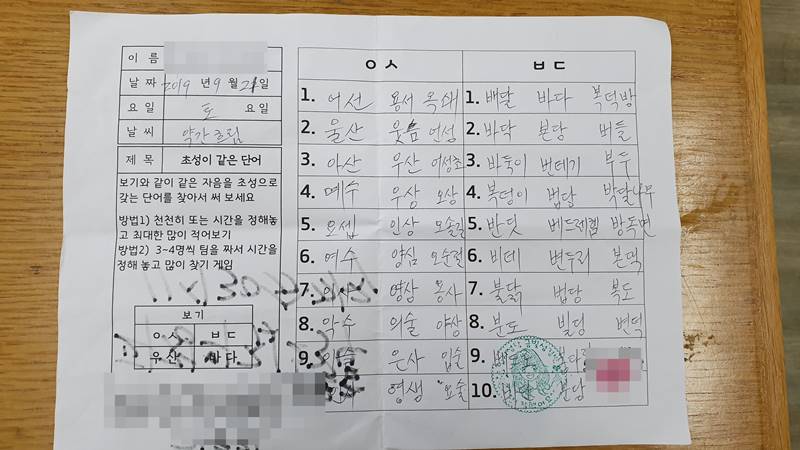 이 름
날 짜 2019 년 9 월 21일
요 일 토 요 일
날 씨 약간 흐림
제 목 초성이 같은 단어
보기와 같이 같은 자음을 초성으로
갖는 단어를 찾아서 써 보세요
방법1) 천천히 또는 시간을 정해놓
고 최대한 많이 적어보기
방법2) 3~4명씩 팀을 짜서 시간을
정해 놓고 많이 찾기 게임
보기
ㅇㅅ ㅂㄷ
우산 바다
ㅇㅅ
1. 어선 용서 옥쇄
2. 울산 웃음 언성
3. 아산 우산 어성초
4. 예수 우상 오상
5. 요셉 인상 오솔길
6. 여수 양심 오순절
7. 영삼 봉사
8. 악수 의술 야상
9. 은사 입술
영생 요술
ㅂㄷ
1. 배달 바다 복덕방
2. 바닥 본당 버들
3. 바둑이 번데기 부두
4. 복덩이 법당 박달나무
5. 반딧 베드레헴 방독면
6. 비데 변두리 본댁
7. 불닭 법당 복도
8. 분도 빌딩 변덕
9.
10. 분당